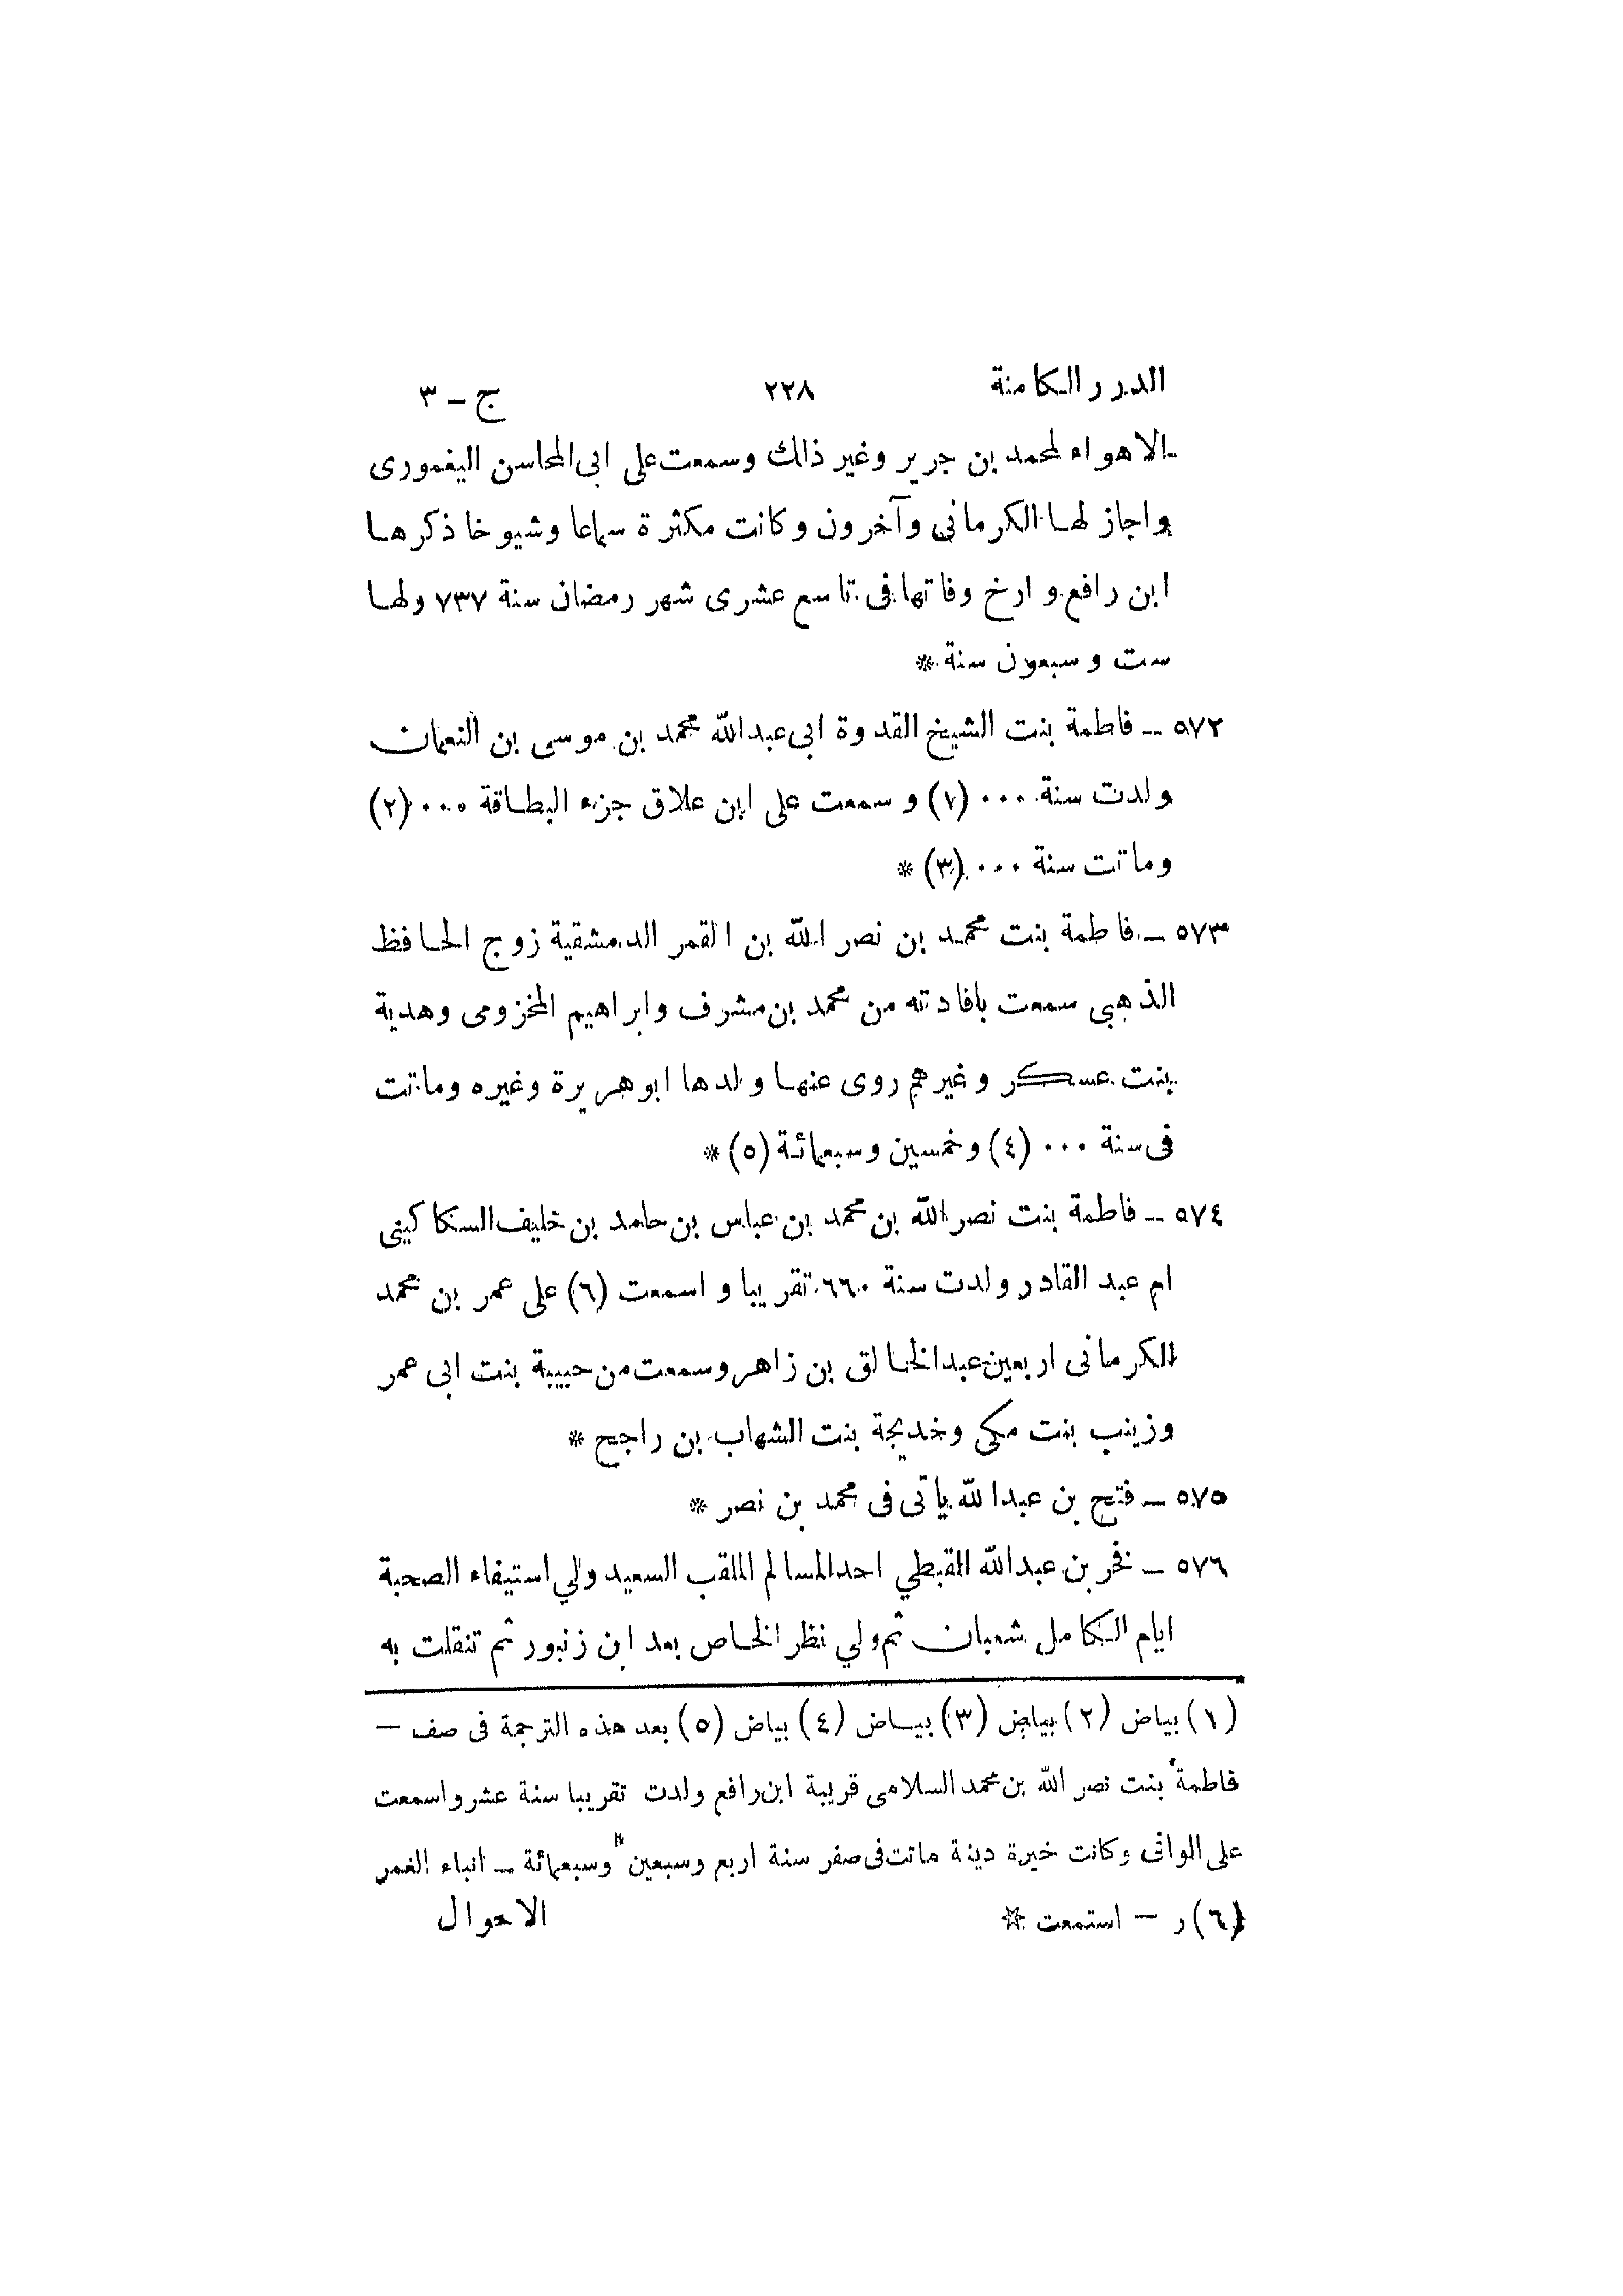 الدرر الكامنة ٢٢٨ ج - ٣
الاهواء لمحمد بن جرير وغير ذلك وسمعت على ابى المحاسن اليغمورى
واجاز لها الكرمانى وآخرون وكانت مكثرة سماعا وشيوخا ذكرها
ابن رافع و ارخ وفاتها فى تاسع عشرى شهر رمضان سنة ٧٣٧ ولها
ست وسبعون سنة *
٥٧٢ – فاطمة بنت الشيخ القدوة ابى عبد الله محمد بن موسى بن النعمان
ولدت سنة ... (٧) و سمعت على ابن علاق جزء البطاقة ... (٢)
وماتت سنة ... (٣) *
٥٧٣ – فاطمة بنت محمد بن نصر الله بن القمر الدمشقية زوج الحافظ
الذهبى سمعت بافادته من محمد بن مشرف وابراهيم المخزومى وهدية
بنت عسكر وغيرهم روى عنها ولدها ابو هريرة وغيره وماتت
فى سنة ... (٤) وخمسين وسبعمائة (٥) *
٥٧٤ – فاطمة بنت نصر الله بن محمد بن عباس بن حامد بن خليف السكاكينى
ام عبد القادر ولدت سنة ٦٦٠ تقريبا و اسمعت (٦) على عمر بن محمد
الكرمانى اربعين عبد الخالق بن زاهر وسمعت من حبيبة بنت ابى عمر
وزينب بنت مكى وخديجة بنت الشهاب بن راجح *
٥٧٥ – فتح بن عبد الله يأتى فى محمد بن نصر *
٥٧٦ – فخر بن عبد الله القبطي احد المسالم الملقب السعيد ولي استيفاء الصحبة
ايام الكامل شعبان ثم ولي نظر الخاص بعد ابن زنبور ثم تنقلت به
(١) بياض (٢) بياض (٣) بياض (٤) بياض (٥) بعد هذه الترجمة فى صف –
فاطمة بنت نصر الله بن محمد السلامى قريبة ابن رافع ولدت تقريبا سنة عشر واسمعت
على الوانى وكانت خيرة دينة ماتت فى صفر سنة اربع وسبعين وسبعمائة – انباء الغمر
(٦) ر – استمعت * الاحوال